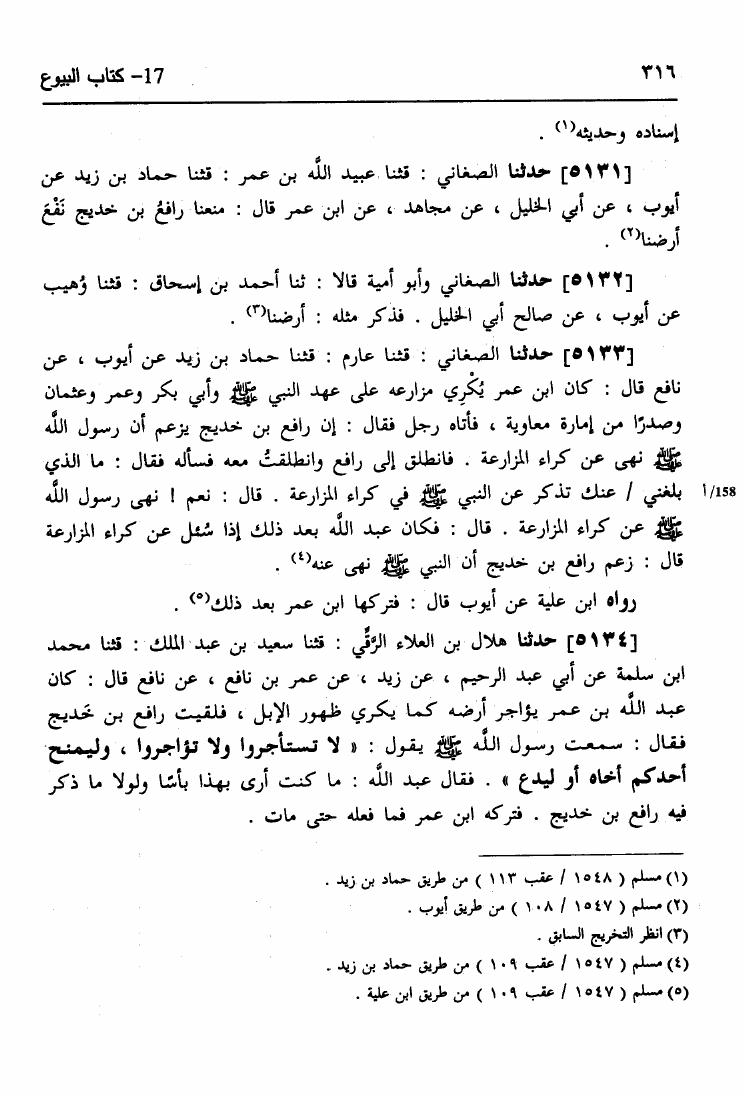 ٣١٦
17- كتاب البيوع
إسناده وحديثه(١) .
[٥١٣١] حدثنا الصغاني : قثنا عبيد اللَّه بن عمر : قثنا حماد بن زيد عن
أيوب ، عن أبي الخليل ، عن مجاهد ، عن ابن عمر قال : منعنا رافعُ بن خديج نَفْعَ
أرضنا(٢) .
[٥١٣٢] حدثنا الصغاني وأبو أمية قالا : ثنا أحمد بن إسحاق : قثنا وُهيب
عن أيوب ، عن صالح أبي الخليل . فذكر مثله : أرضنا(٣) .
[٥١٣٣] حدثنا الصغاني : قثنا عارم : قثنا حماد بن زيد عن أيوب ، عن
نافع قال : كان ابن عمر يُكْرِي مزارعه على عهد النبي ﷺ وأبي بكر وعمر وعثمان
وصدرًا من إمارة معاوية ، فأتاه رجل فقال : إن رافع بن خديج يزعم أن رسول اللَّه
ﷺ نهى عن كراء المزارعة . فانطلق إلى رافع وانطلقتُ معه فسأله فقال : ما الذي
بلغني / عنك تذكر عن النبي ﷺ في كراء المزارعة . قال : نعم ! نهى رسول اللَّه
158/أ
ﷺ عن كراء المزارعة . قال : فكان عبد اللَّه بعد ذلك إذا سُئل عن كراء المزارعة
قال : زعم رافع بن خديج أن النبي ﷺ نهى عنه(٤) .
رواه ابن علية عن أيوب قال : فتركها ابن عمر بعد ذلك(٥) .
[٥١٣٤] حدثنا هلال بن العلاء الرَّقِّي : قثنا سعيد بن عبد الملك : قثنا محمد
ابن سلمة عن أبي عبد الرحيم ، عن زيد ، عن عمر بن نافع ، عن نافع قال : كان
عبد اللَّه بن عمر يؤاجر أرضه كما يكري ظهور الإبل ، فلقيت رافع بن خَديج
فقال : سمعت رسول اللَّه ﷺ يقول : « لا تستأجروا ولا تؤاجروا ، وليمنح
أحدكم أخاه أو ليدع » . فقال عبد اللَّه : ما كنت أرى بهذا بأسًا ولولا ما ذكر
فيه رافع بن خديج . فتركه ابن عمر فما فعله حتى مات .
(١) مسلم ( ١٥٤٨ / عقب ١١٣ ) من طريق حماد بن زيد .
(٢) مسلم ( ١٥٤٧ / ١٠٨ ) من طريق أيوب .
(٣) انظر التخريج السابق .
(٤) مسلم ( ١٥٤٧ / عقب ١٠٩ ) من طريق حماد بن زيد .
(٥) مسلم ( ١٥٤٧ / عقب ١٠٩ ) من طريق ابن علية .